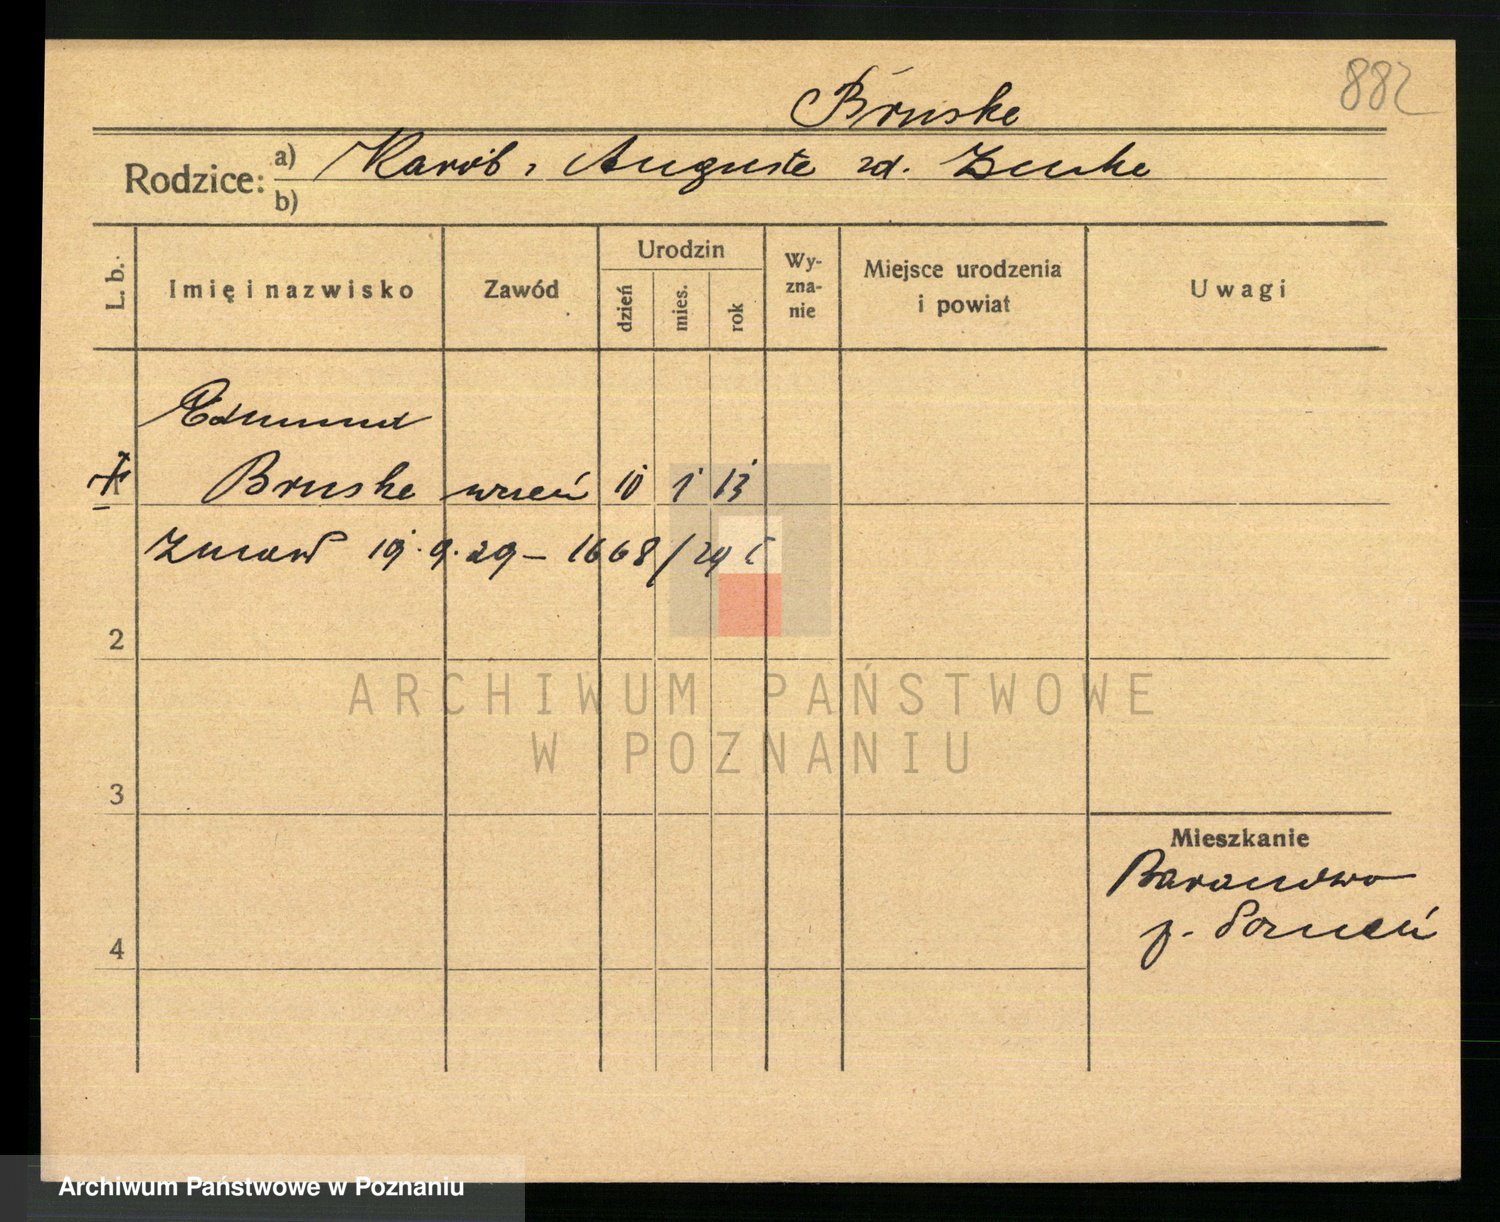 882
Bruske
Rodzice: a) Karól i Auguste zd. Zuske
b)
L. b.
Imię i nazwisko
Zawód
Urodzin
dzień
mies.
rok
Wy-
zna-
nie
Miejsce urodzenia
i powiat
Uwagi
Edmund
Bruske uczeń 10 1 13
19.9.29 – 1668/29
2
3
4
ARCHIWUM PAŃSTWOWE
W POZNANIU
Mieszkanie
Baranowo
p. Poznań
Archiwum Państwowe w Poznaniu